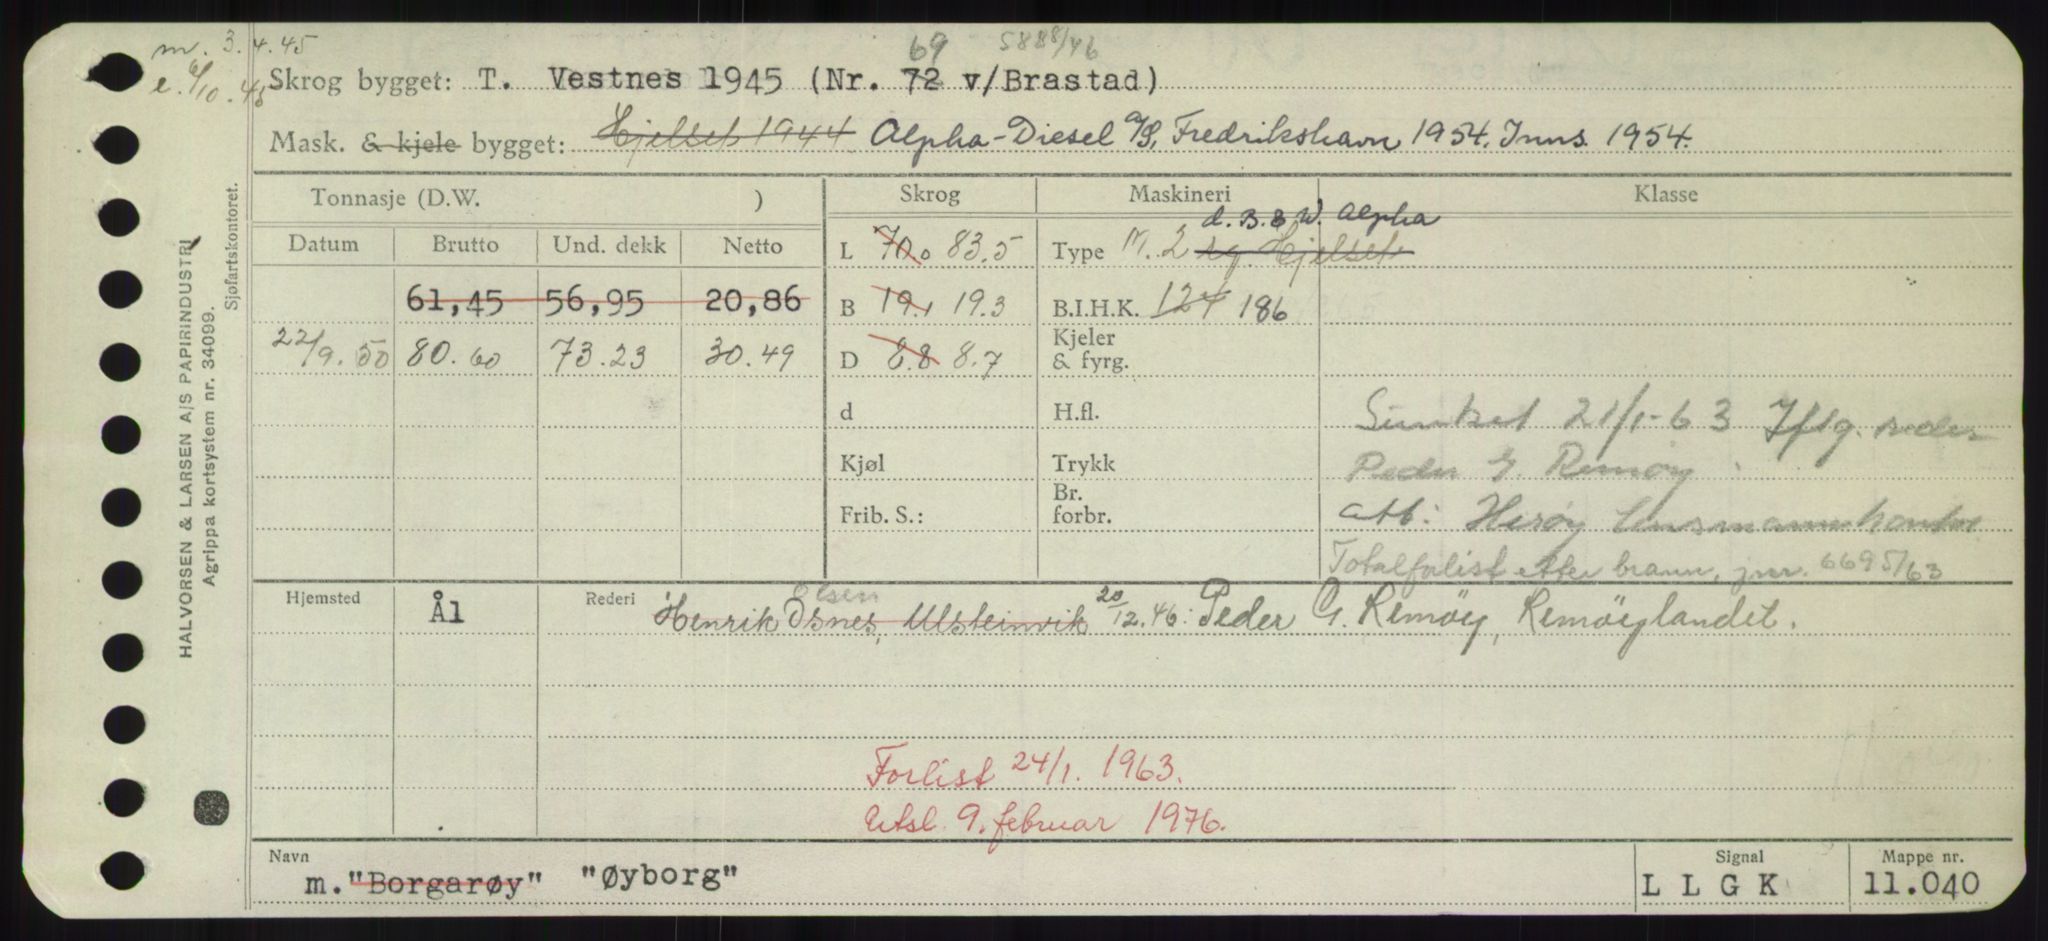 m. 3.4.45
e. 6/10.45
69 5888/46
Skrog bygget: T. Vestnes 1945 (Nr. 72 v/Brastad)
Mask. & kjele bygget: Hjelset 1944 Alpha-Diesel A/S, Fredrikshavn 1954. Inns. 1954.
Tonnasje (D.W. ) Skrog Maskineri Klasse
d. B.&W. Alpha
Datum Brutto Und. dekk Netto L 70.0 83.5 Type M. 2 sg. Hjelset
61,45 56,95 20,86 B 19.1 19.3 B.I.H.K. 124 186
22/9.50 80.60 73.23 30.49 D 8.8 8.7 Kjeler & fyrg.
d H.fl. Sunket 21/1-63 Iflg. reder
Kjøl Trykk Peder G. Remøy.
Frib. S.: Br. forbr. att: Herøy lensmannskontor
Totalforlist etter brann, jnr. 6695/63
Elsen
Hjemsted Ål Rederi Henrik Osnes, Ulsteinvik 20/12.46: Peder G. Remøy, Remøylandet.
Forlist 24/1. 1963.
Utsl. 9. februar 1976.
Navn Signal Mappe nr.
m. "Borgarøy" "Øyborg" LLGK 11.040
HALVORSEN & LARSEN A/S PAPIRINDUSTRI
Agrippa kortsystem nr. 34099.
Sjøfartskontoret.